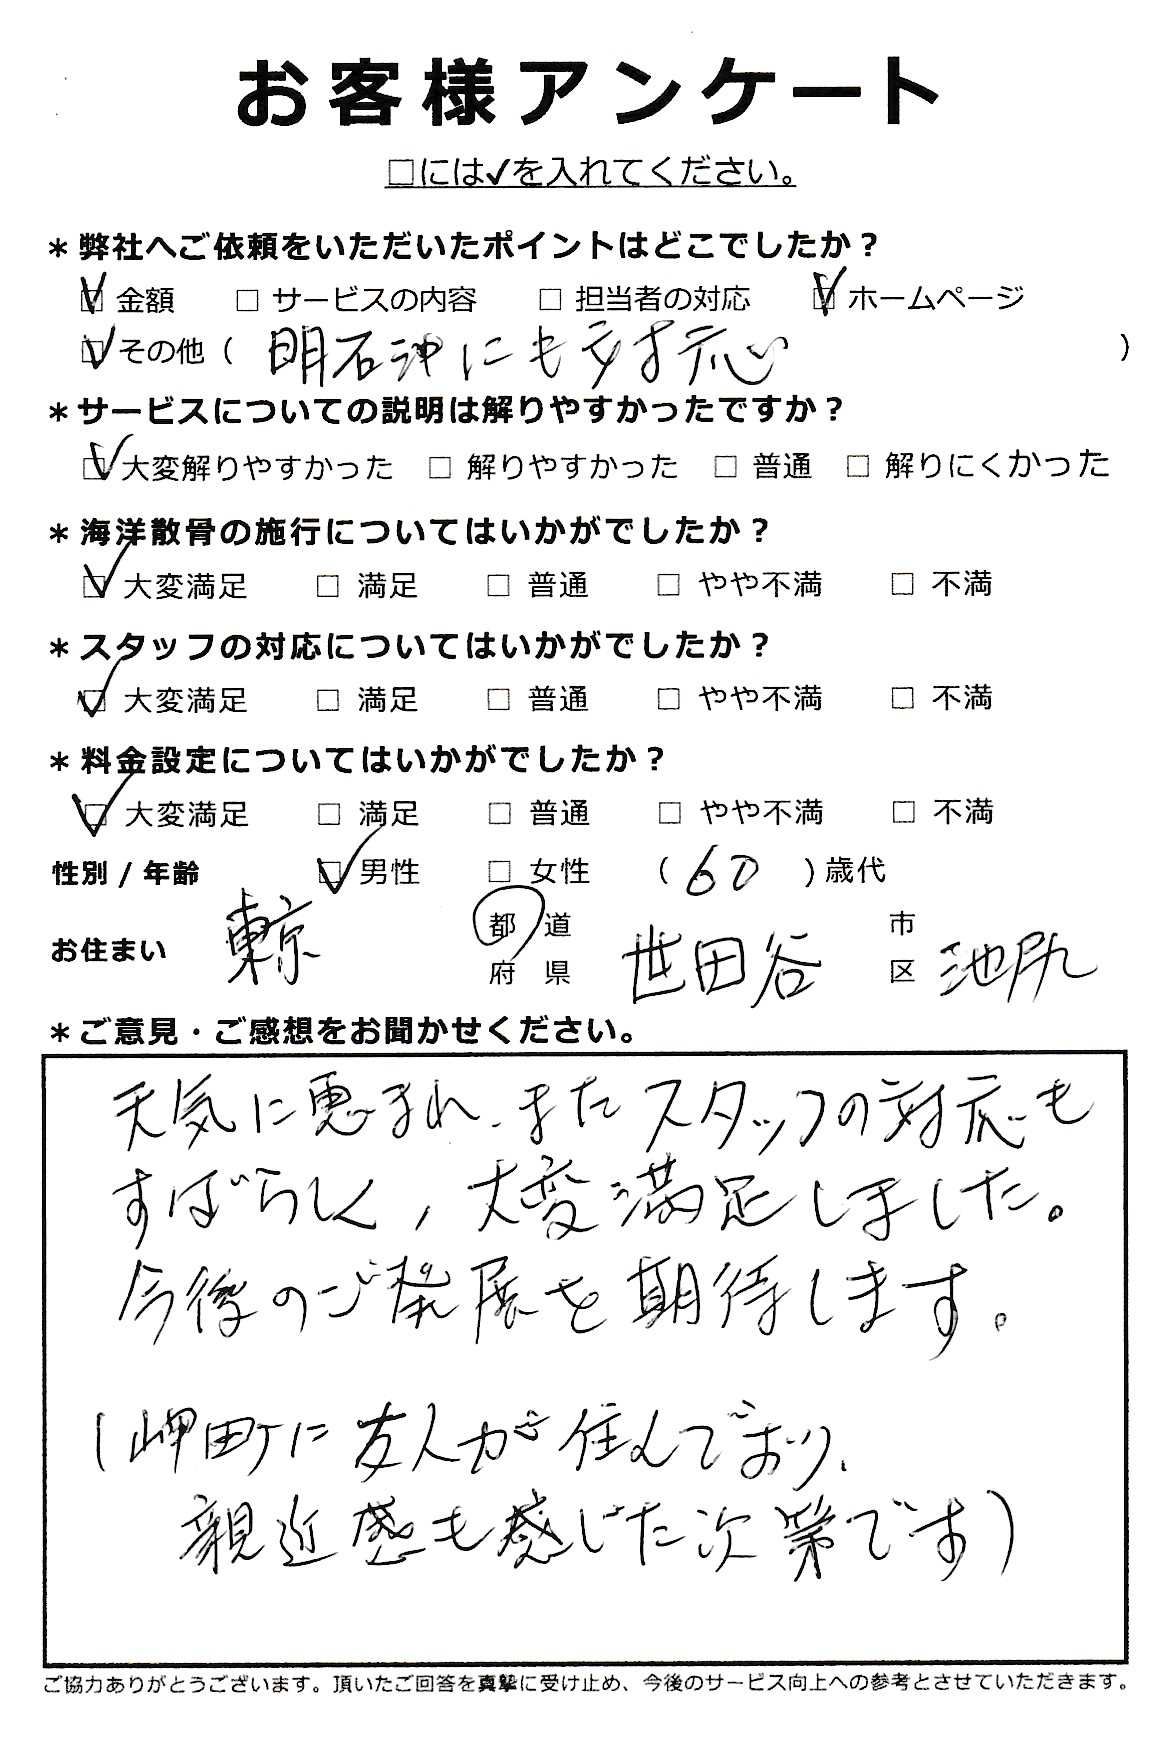 お客様アンケート
□には✓を入れてください。
＊弊社へご依頼をいただいたポイントはどこでしたか？
☑ 金額 □ サービスの内容 □ 担当者の対応 ☑ ホームページ
☑ その他（ 明石沖にも対応 ）
＊サービスについての説明は解りやすかったですか？
☑ 大変解りやすかった □ 解りやすかった □ 普通 □ 解りにくかった
＊海洋散骨の施行についてはいかがでしたか？
☑ 大変満足 □ 満足 □ 普通 □ やや不満 □ 不満
＊スタッフの対応についてはいかがでしたか？
☑ 大変満足 □ 満足 □ 普通 □ やや不満 □ 不満
＊料金設定についてはいかがでしたか？
☑ 大変満足 □ 満足 □ 普通 □ やや不満 □ 不満
性別 / 年齢 ☑ 男性 □ 女性 （ 60 ）歳代
お住まい 東京 都 道 府 県 世田谷 市 区 池尻
＊ご意見・ご感想をお聞かせください。
天気に恵まれ、またスタッフの対応も
すばらしく、大変満足しました。
今後のご発展を期待します。
（岬町に友人が住んでおり、
親近感も感じた次第です）
ご協力ありがとうございます。頂いたご回答を真摯に受け止め、今後のサービス向上への参考とさせていただきます。